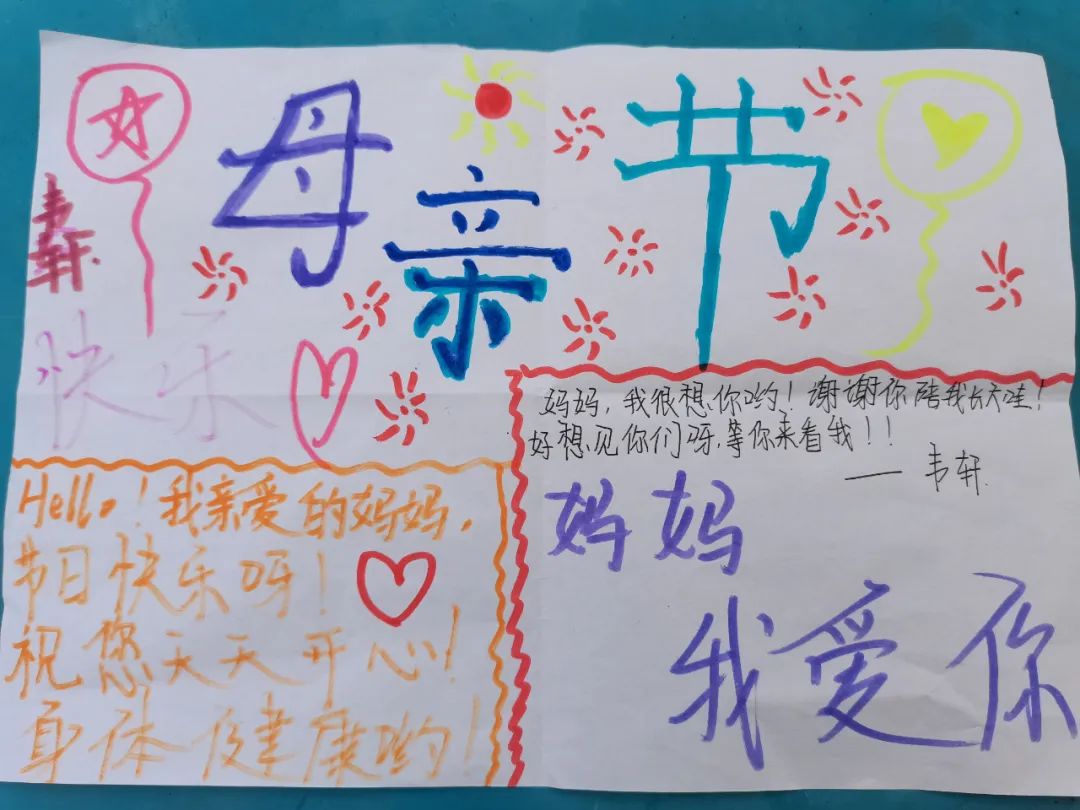 母亲节
韦轩
快乐
妈妈，我很想你哟！谢谢你陪我长大哇！
好想见你们呀，等你来看我！！
—— 韦轩
Hello！我亲爱的妈妈，
节日快乐呀！
祝您天天开心！
身体健康哟！
妈妈
我爱你